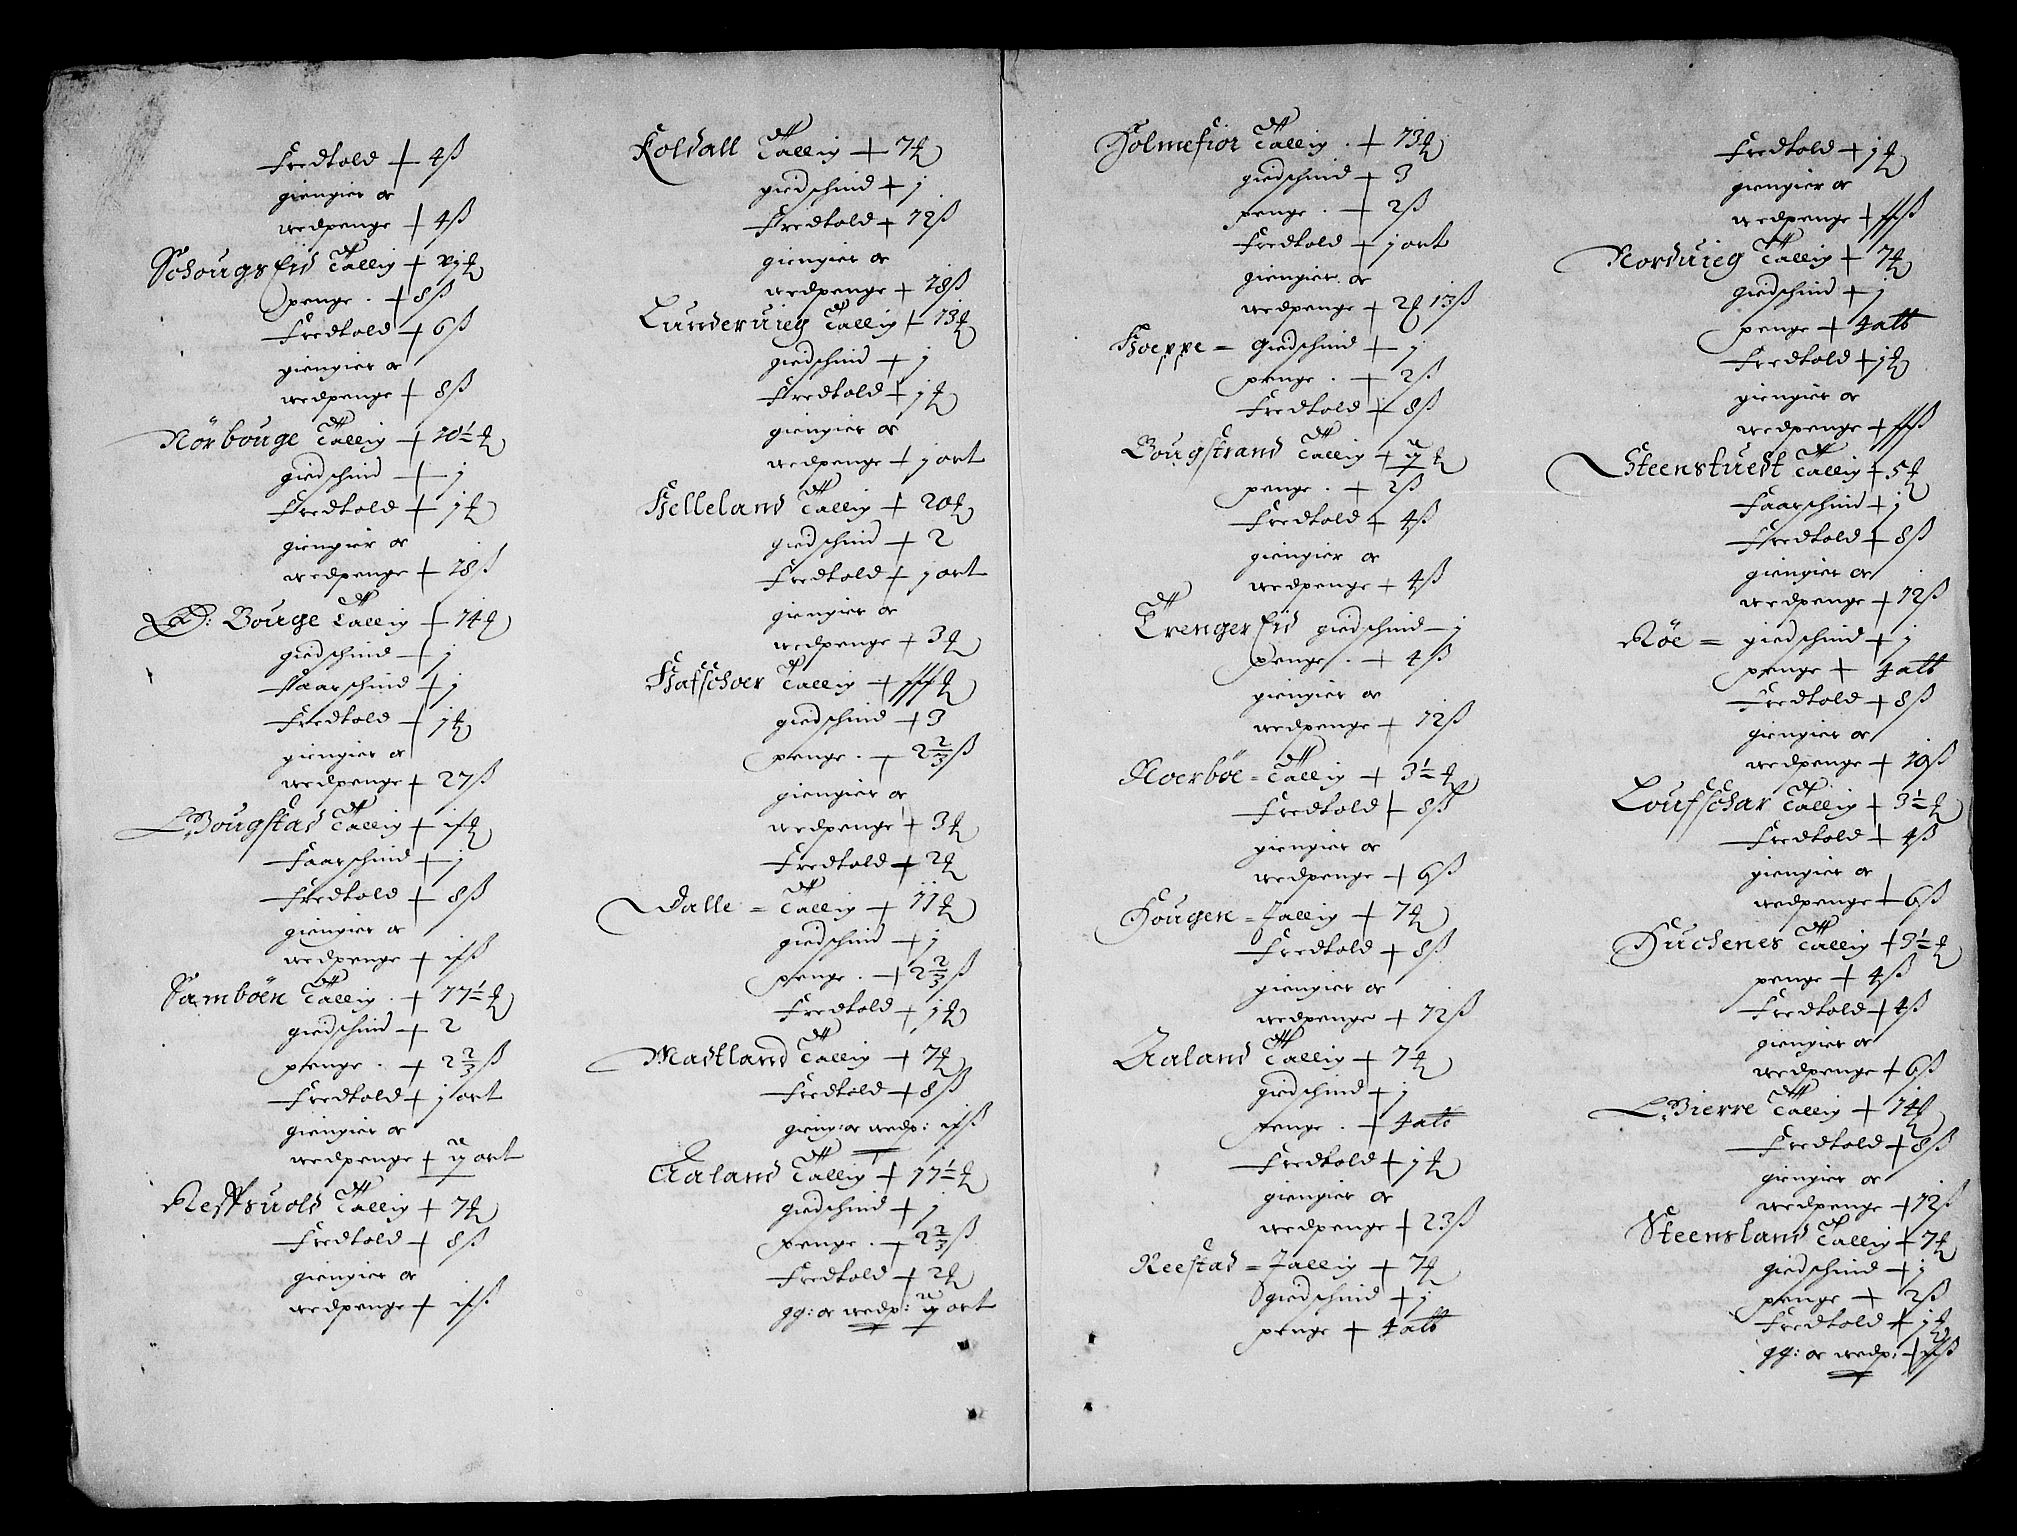 Fredtold + 4ß
giengier oc
wedpenge + 4ß
Schougs Eid Tallig + vj
penge . + 8ß
Fredtold + 6ß
giengier oc
wedpenge + 8ß
Nörbouge Tallig + 10½
giedschind + j
Fredtold + j
giengier oc
wedpenge + 18ß
Bouge Tallig + 14
giedschind + j
Faarschind + j
Fredtold + j
giengier oc
wedpenge + 27ß
Bougstad Tallig +
Faarschind + j
Fredtold + 8ß
giengier oc
wedpenge +
Samböen Tallig . + 17½
giedschind + 2
penge . + 2 2/3 ß
Fredtold + j ort
giengier oc
wedpenge + ij ort
Reffsuold Tallig + 7
Fredtold + 8ß
giengier oc
wedpenge +
Koldall Tallig + 7
giedschind + j
Fredtold + 12ß
giengier oc
wedpenge + 18ß
Lunderuieg Tallig + 13
giedschind + j
Fredtold + j
giengier oc
wedpenge + j ort
Helleland Tallig + 20
giedschind + 2
Fredtold + j ort
giengier oc
wedpenge + 3
Hafschoer Tallig +
giedschind + 3
penge . + 2 2/3 ß
giengier oc
wedpenge + 3
Fredtold + 2
Dalle = Tallig + 11
giedschind + j
penge . + 2 2/3 ß
Fredtold + j
Madtland Tallig + 7
Fredtold + 8ß
gieng: oc wedp:
Aaland Tallig + 17½
giedschind + j
penge . + 2 2/3 ß
Fredtold + 2
gg: oc wedp: ij ort
Holmefior Tallig . + 13
giedschind + 3
penge . + 2ß
Fredtold + j ort
giengier oc
wedpenge + 2 13ß
Hoeppe = Giedschind + j
penge . + 2ß
Fredtold + 8ß
Bougstrand Tallig + ij
penge . + 2ß
Fredtold + 4ß
giengier oc
wedpenge + 4ß
Trenger Eid giedschind + j
penge . + 4ß
giengier oc
wedpenge + 12ß
Roerböe = Tallig + 3½
Fredtold + 8ß
giengier oc
wedpenge + 6ß
Hougen = Tallig + 7
Fredtold + 8ß
giengier oc
wedpenge + 12ß
Aaland Tallig + 7
giedschind + j
penge . + 4 alb
Fredtold + j
giengier oc
wedpenge + 23ß
Reestad = Tallig + 7
giedschind + j
penge + 4 alb
Fredtold + j
giengier oc
wedpenge +
Norduieg Tallig + 7
giedschind + j
penge + 4 alb
Fredtold + j
giengier oc
wedpenge +
Steenstuedt Tallig + 5
Faarschind + j
Fredtold + 8ß
giengier oc
wedpenge + 12ß
Röe = giedschind + j
penge + 4 alb
Fredtold + 8ß
giengier oc
wedpenge + 19ß
Loufschar Tallig + 3½
Fredtold + 4ß
giengier oc
wedpenge + 6ß
Huchenes Tallig + 3½
penge + 4ß
Fredtold + 4ß
giengier oc
wedpenge + 6ß
Bierre Tallig + 14
Fredtold + 8ß
giengier oc
wedpenge + 12ß
Steensland Tallig + 7
giedschind + j
penge + 2ß
Fredtold + j
gg: oc wedp: +